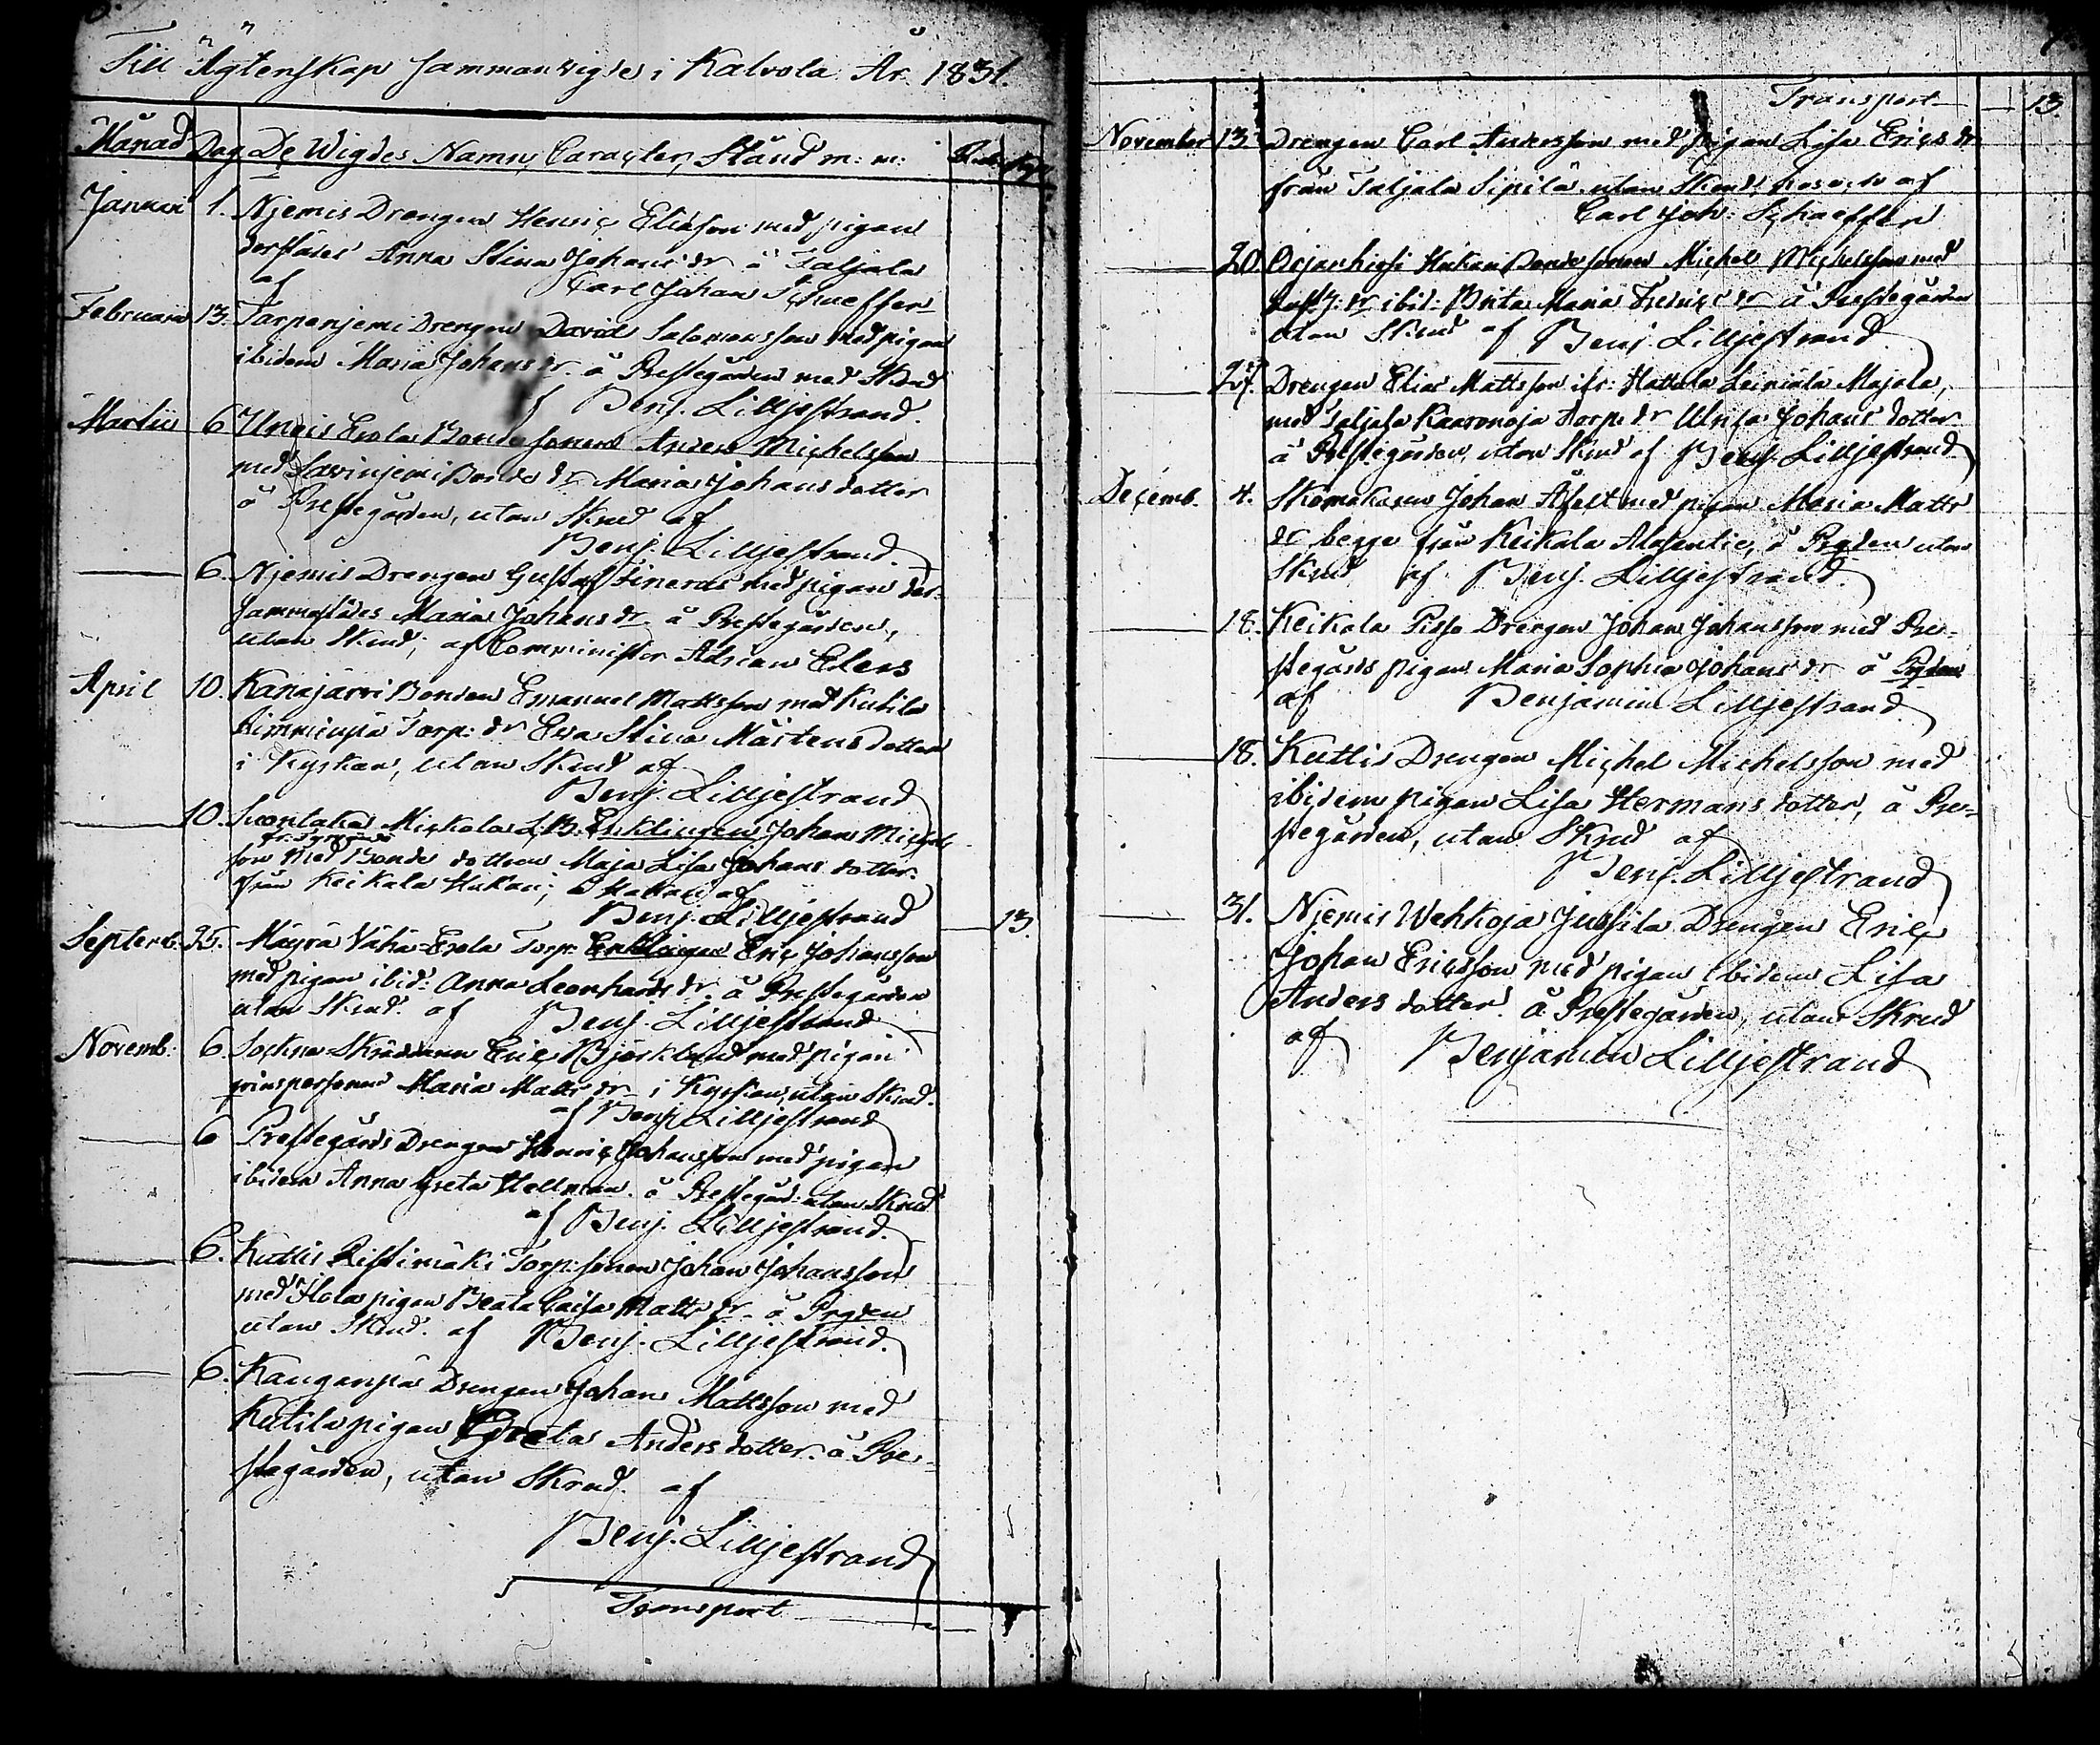 Till Ägtenskap Sammanwigde i Kalvola År 1831.
Månad Dag De Wigdes Namn, Caracter, Stånd m: m:
Januari 1. Njemis Drengen Henric Eliasson med pigan
derstädes Anna Stina Johans dr å Taljala
af Carl Johan Schaeffer
Februarii 13. Tarpenjemi Drengen David Salomonsson med pigan
ibidem Maria Johans dr. å Prestegården med Skrud
af Benj. Lilljestrand.
Martii 6 Uncis Erola Bonde Sonen Anders Michelsson
med Savinjemi Bonde dr Maria Johans dotter
å Prestegården, utan Skrud af
Benj. Lilljestrand.
6. Njemis Drengen Gustaf Sinerus med pigan der-
sammastädes Maria Johans dr. å Prestegården,
utan Skrud; af Comminister Adrian Elers
April 10. Kanajärvi Bonden Emanuel Mattsson med Kutila
Torp: dr Eva Stina Mårtens dotter
i Kyrkan, utan Skrud af
Benj. Lilljestrand
10. Suontaka Mickola Enklingen Johan Michels
son med Bonde dottren Maja Lisa Johans dotter.
från Keikala Hakari; å Hakari af
Benj. Lilljestrand
Septemb. 25. Mäyrä Vähä-Erola Torp: Enklingen Eric Johansson 13.
med pigan ibid: Anna Leonhards dr. å Prestegården
utan Skrud. af Benj. Lilljestrand
Novemb: 6. Sockne Skräddaren Eric Björklund med pigan
Maria Matts dr i Kyrkan, utan Skrud.
af Benj. Lilljestrand
6 Prestegårds Drengen Henric Johansson med pigan
ibidem Anna Greta Hellman. å Prestegård: utan Skrud
af Benj. Lilljestrand.
6. Kutlis Ristimäki Torp: Sonen Johan Johansson
med pigan Beata Caisa Matts dr. å Prgden
utan Skrud. af Benj. Lilljestrand.
6. Kauganpä Drengen Johan Mattsson med
Kutila pigan Greta Anders dotter. å Pre-
stegården, utan Skrud. af
Benj. Lilljestrand
Transport
Transport 13.
November 13. Drengen Carl Andersson med pigan Lisa Erics dr
från Taljala Sipilä utan Skrud, af
Carl Joh: Schaeffer
20. Orjanhirfi Hakari Bonde Sonen Michel Michelsson med
dr ibid: Brita Maria Fredrics dr å Prestegården
utan Skrud af Benj. Lilljestrand.
27. Drengen Elias Mattsson ifr: Hattula Leiniälä Majala,
med Taljala Kaaronoja Torp: dr Ulrica Johans dotter
å Prestegården, utan Skrud af Benj. Lilljestrand
Decemb. 4. Skomakaren Johan med pigan Maria Matts
dr begge från Keikala Alasentie, å Prgden utan
Skrud af Benj. Lilljestrand.
18. Keikala Drengen Johan Johansson med Pre-
stegårds pigan Maria Sophia Johans dr å Prgden
af Benjamin Lilljestrand.
18. Kutlis Drengen Michel Michelsson med
ibidem pigan Lisa Hermans dotter, å Pre-
stegården, utan Skrud af
Benj. Lilljestrand
31. Njemis Wehkoja Jussila Drengen Eric
Johan Ericsson med pigan ibidem Lisa
Anders dotter. å Prestegården, utan Skrud
af Benjamin Lilljestrand